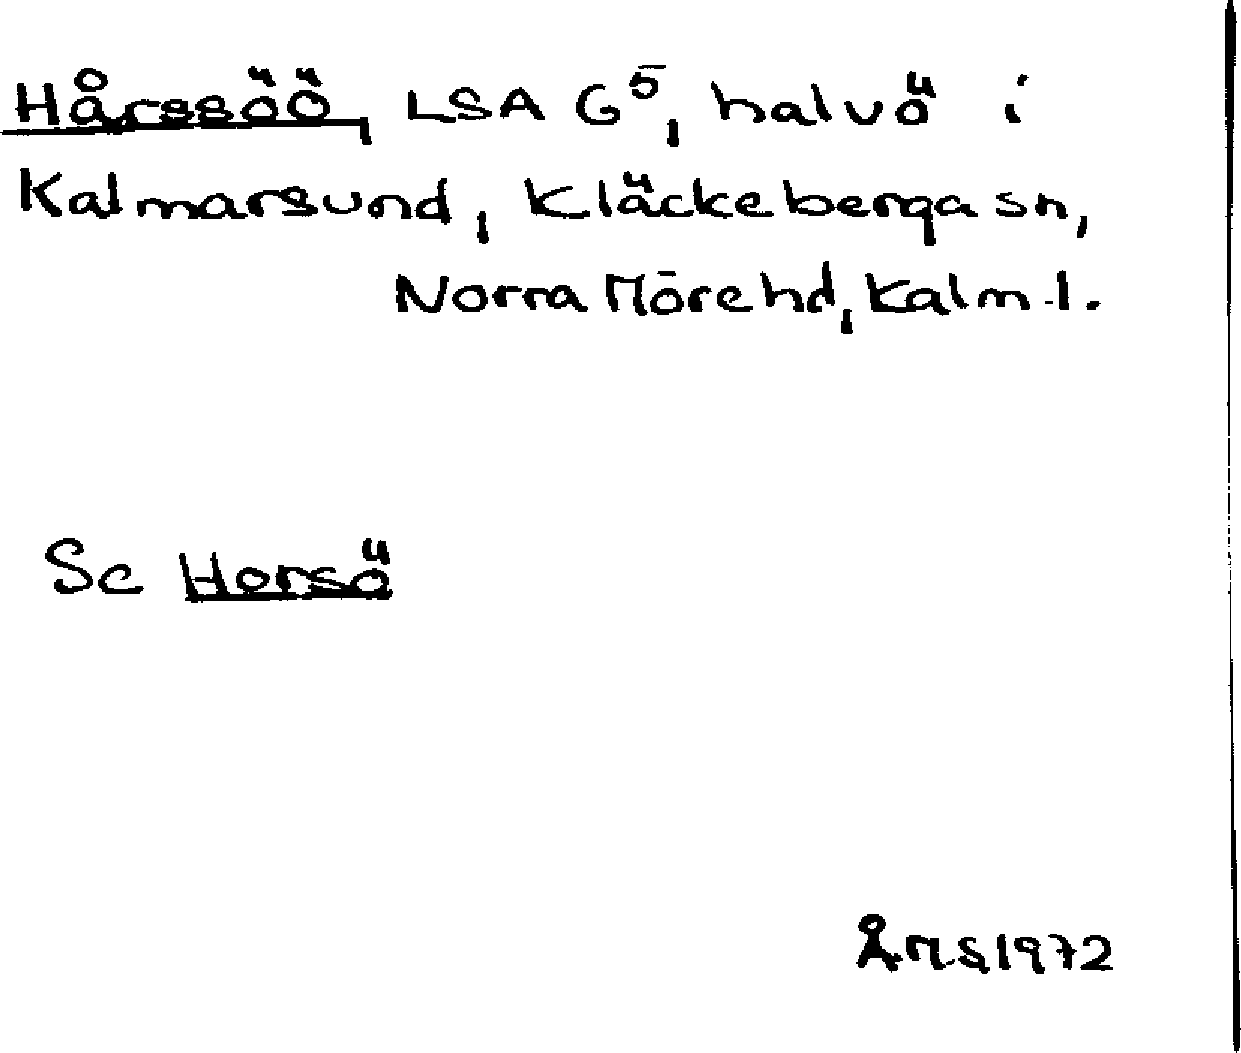 Hårssöö, LSA G⁵, halvö i
Kalmarsund, Kläckeberga sn,
Norra Möre hd, Kalm. l.
Se Horsö
ÅMS 1972